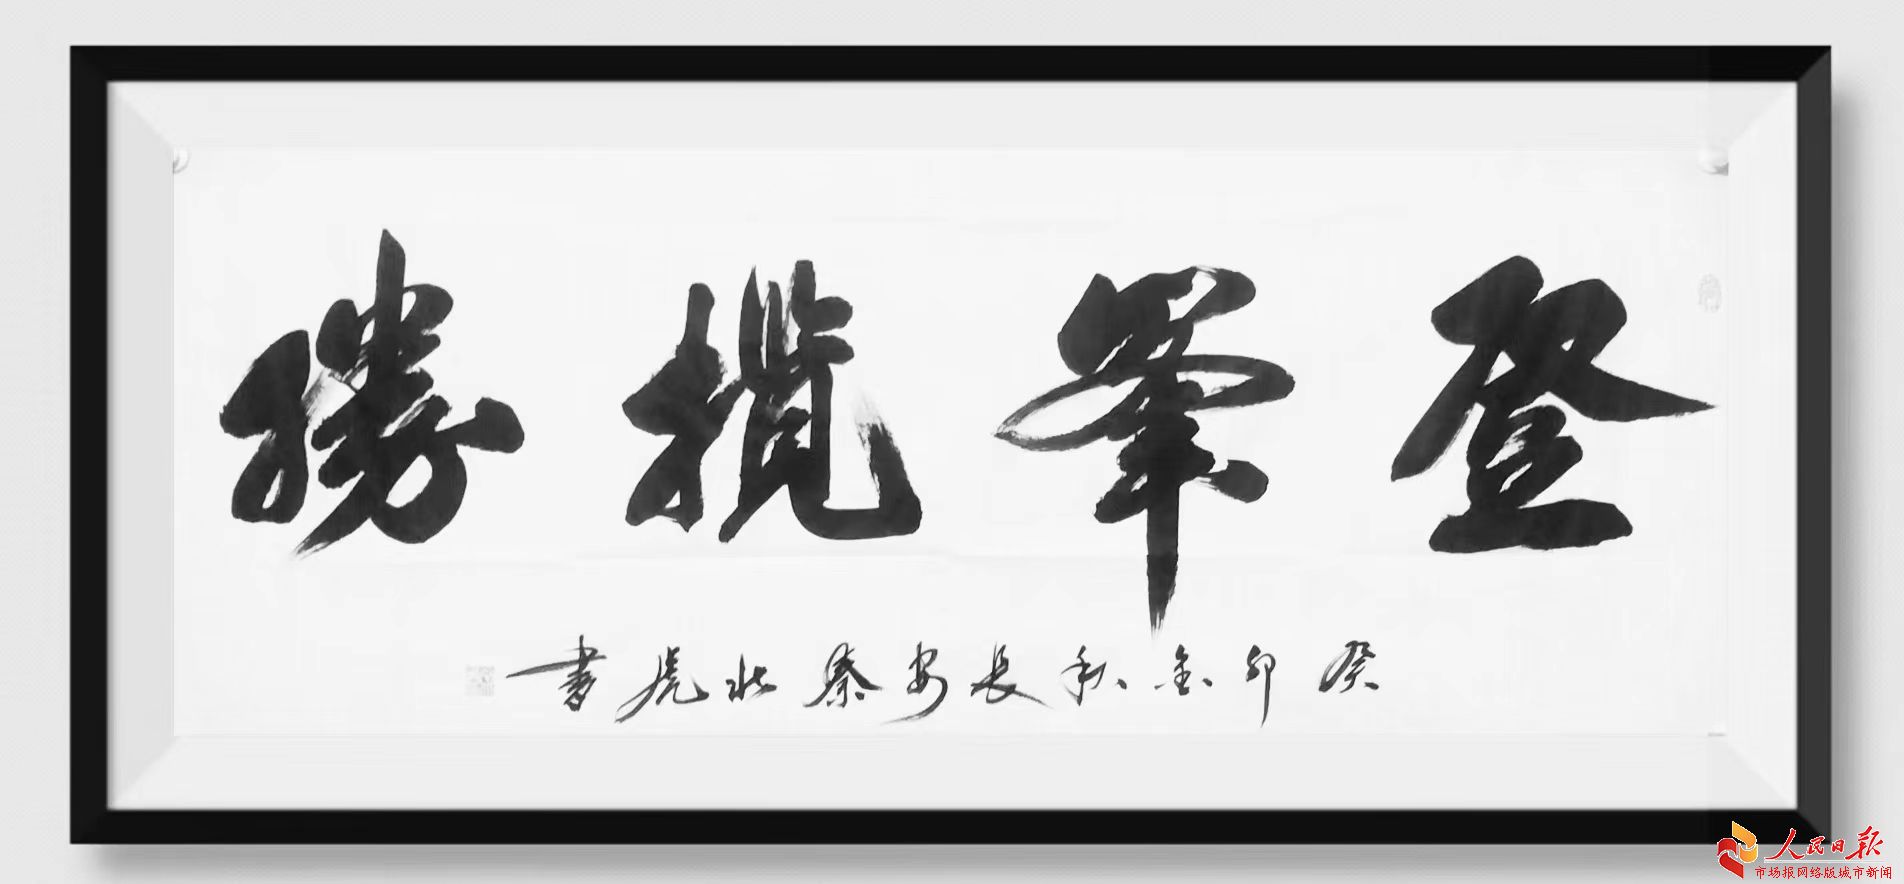 登峯揽勝
癸卯金秋長安秦北虎书
人民日报
市场报网络版城市新闻